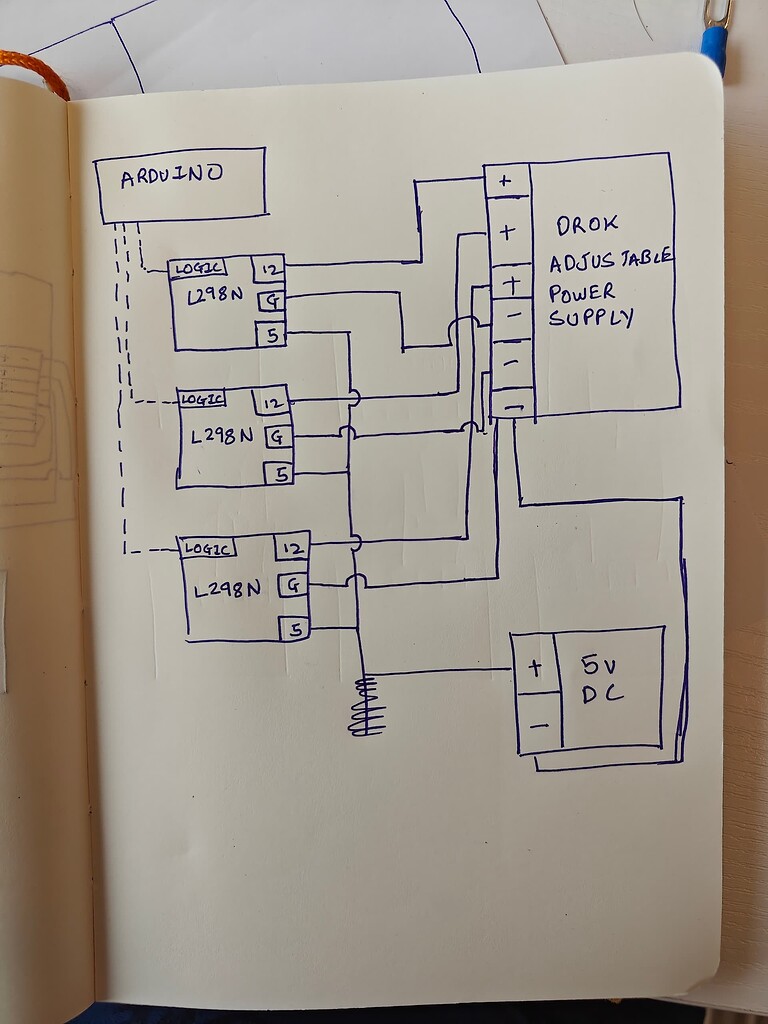 ARDUINO
LOGIC 12
L298N G
5
LOGIC 12
L298N G
5
LOGIC 12
L298N G
5
+
+
+
-
-
-
DROK
ADJUSTABLE
POWER
SUPPLY
+
-
5V
DC